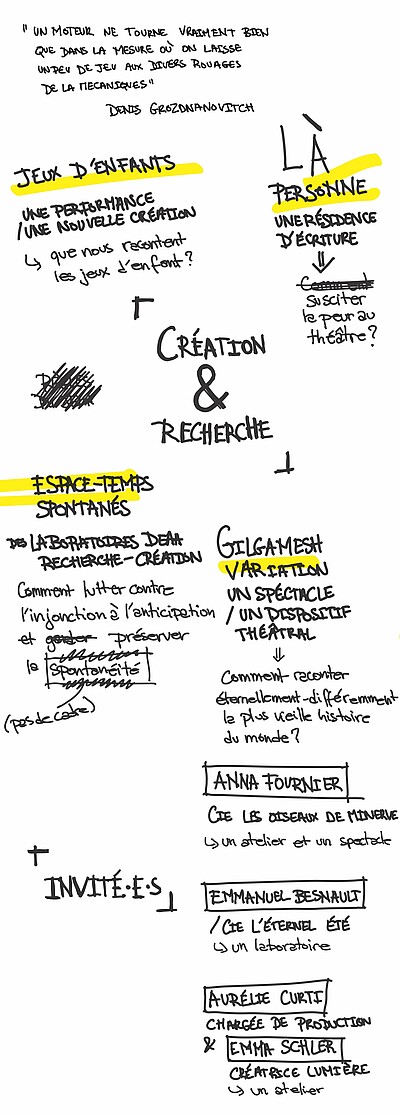 "UN MOTEUR NE TOURNE VRAIMENT BIEN
QUE DANS LA MESURE OÙ ON LAISSE
UN PEU DE JEU AUX DIVERS ROUAGES
DE LA MECANIQUES"
DENIS GROZDNANOVITCH
JEUX D'ENFANTS
UNE PERFORMANCE
/UNE NOUVELLE CRÉATION
↳ que nous racontent
les jeux d'enfant?
LÀ
PERSONNE
UNE RÉSIDENCE
D'ÉCRITURE
⇓
Comment
susciter
la peur au
théâtre?
CRÉATION
&
RECHERCHE
ESPACE-TEMPS
SPONTANÉS
DES LABORATOIRES DE
RECHERCHE-CRÉATION
Comment lutter contre
l'injonction à l'anticipation
et garder préserver
la spontanéité
(pas de cadre)
GILGAMESH
VARIATION
UN SPÉCTACLE
/ UN DISPOSITIF
THÉÂTRAL
⇓
Comment raconter
éternellement-différemment
la plus vieille histoire
du monde?
ANNA FOURNIER
CIE LES OISEAUX DE MINERVE
↳ un atelier et un spectacle
INVITÉ·E·S
EMMANUEL BESNAULT
/CIE L'ÉTERNEL ÉTÉ
↳ un laboratoire
AURÉLIE CURTI
CHARGÉE DE PRODUCTION
& EMMA SCHLER
CRÉATRICE LUMIÈRE
↳ un atelier